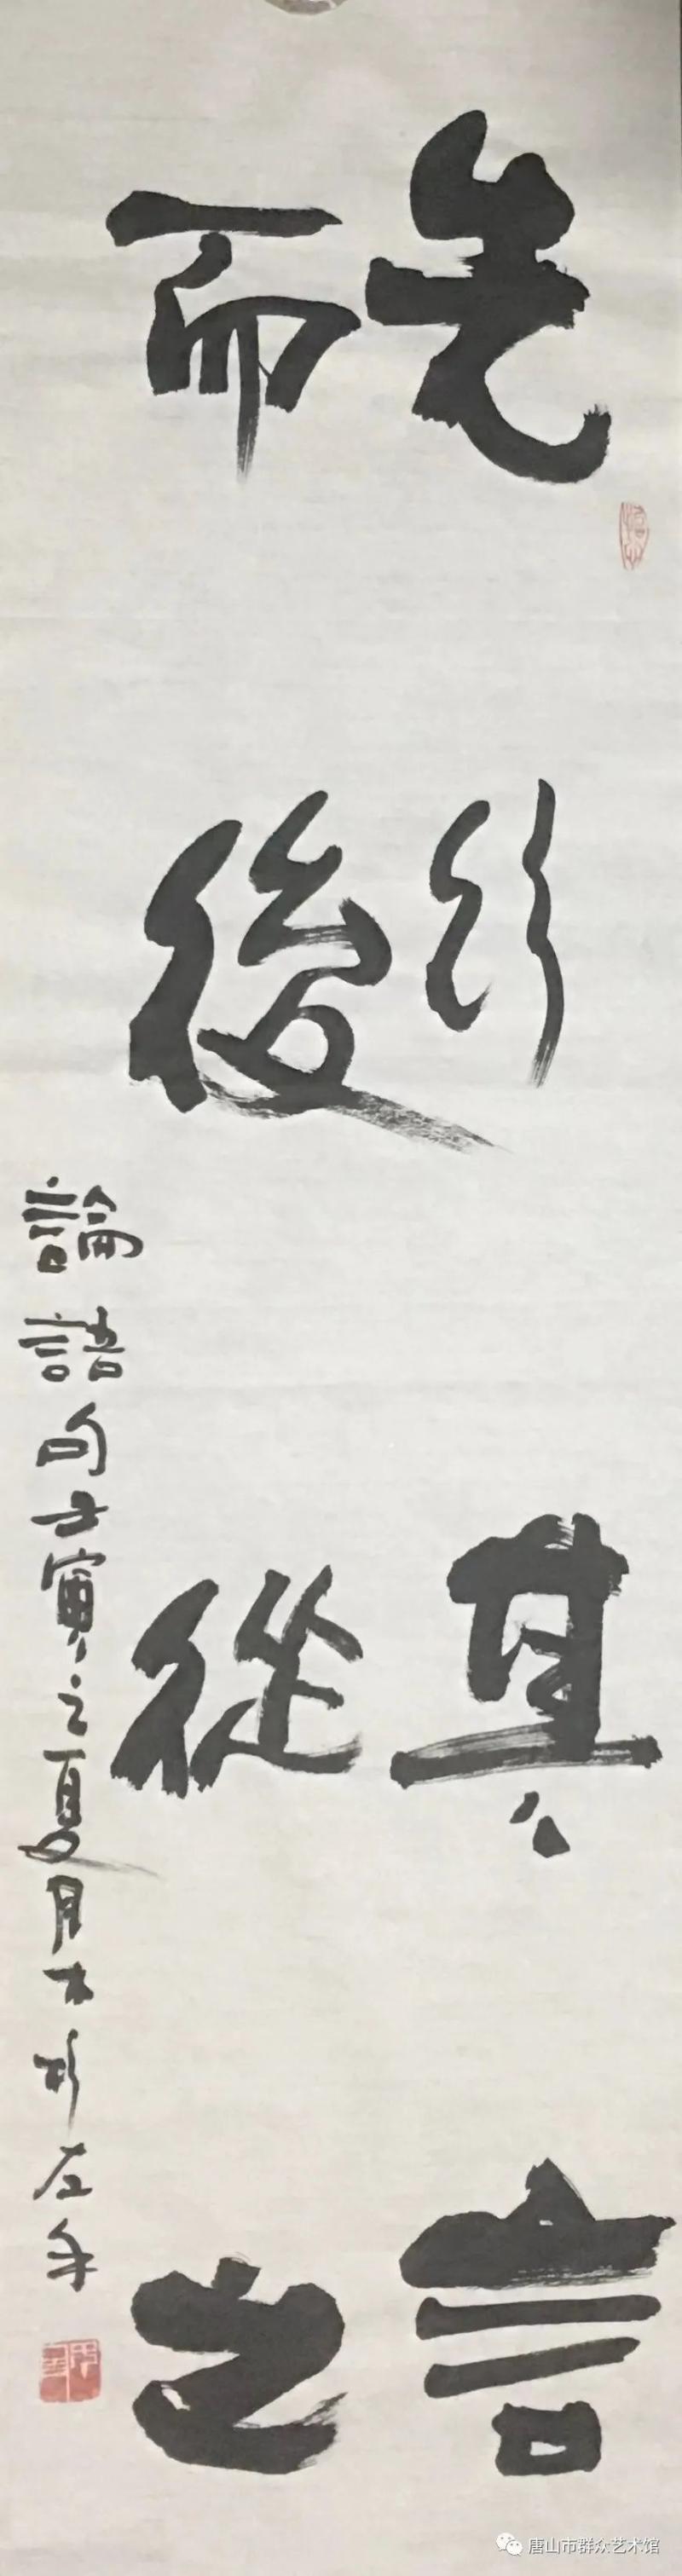 先行其言
而後從之
論語句壬寅之夏月
左手
唐山市群众艺术馆